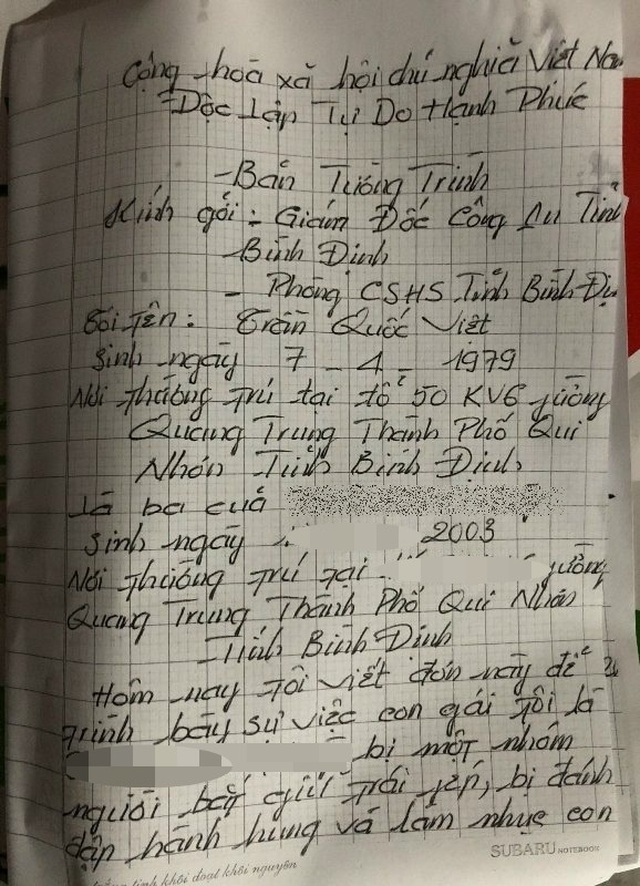 Cộng hoà xã hội chủ nghiã Việt Na
Độc lập Tự Do Hạnh Phúc
- Bản Tường Trình
Kính gởi: Giám Đốc Công An Tỉnh
Bình Định
- Phòng CSHS Tỉnh Bình Đị
Tôi tên: Trần Quốc Việt
Sinh ngày 7 - 4 - 1979
Nơi thường trú tại tổ 50 KV6 phường
Quang Trung Thành Phố Qui
Nhơn Tỉnh Bình Định
Là ba của
Sinh ngày 2003
Nơi thường trú tại phường
Quang Trung Thành Phố Qui Nhơn
- Tỉnh Bình Định
Hôm nay tôi viết đơn này để
trình bày sự việc con gái tôi là
bị một nhóm
người bắt giữ trái phép, bị đánh
đập hành hung và làm nhục con
SUBARU NOTEBOOK
tinh khôi đoạt khôi nguyên